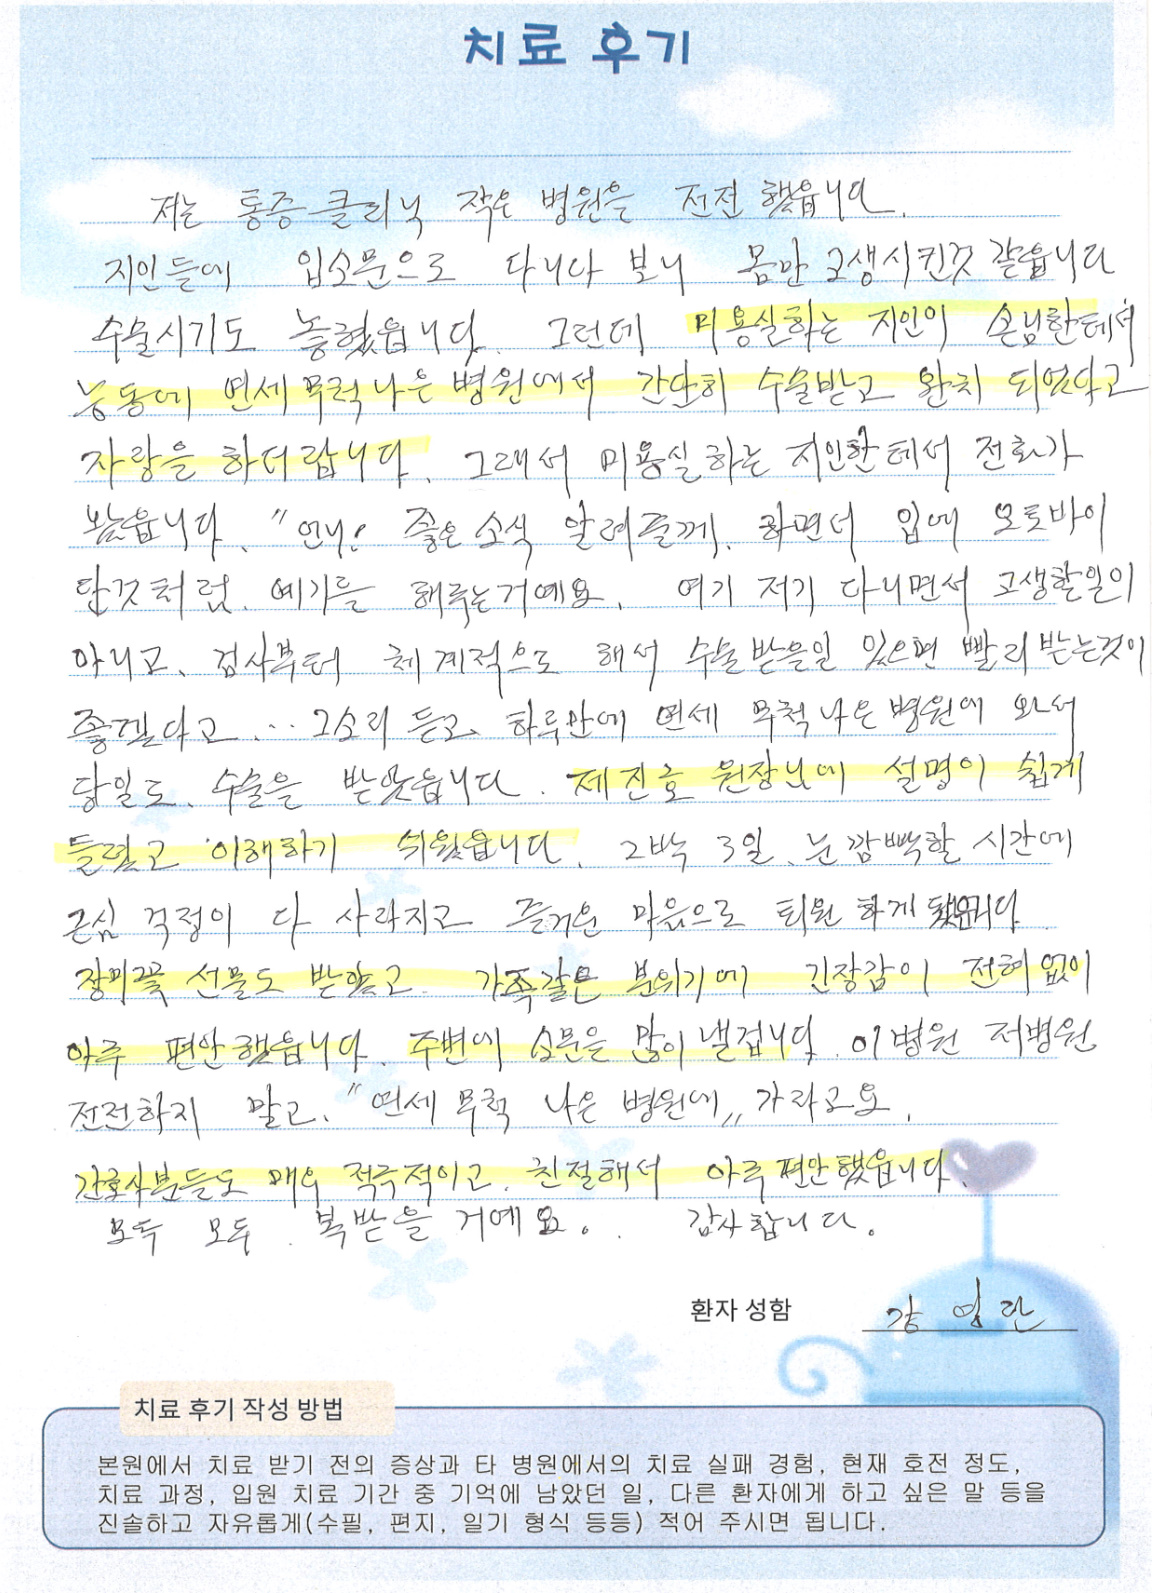 치료 후기
저는 통증클리닉 작은 병원을 전전 했읍니다.
지인들에 입소문으로 다니다 보니 몸만 고생시킨것 같읍니다
수술시기도 놓혔읍니다. 그런데 미용실하는 지인이 손님한테서
능동에 연세무척나은병원에서 간단히 수술받고 완치 되었다고
자랑을 하더랍니다. 그래서 미용실하는 지인한테서 전화가
왔읍니다. "언니! 좋은 소식 알려줄께. 하면서 입에 오토바이
단것처럼. 예기를 해주는거예요. 여기 저기 다니면서 고생할일이
아니고. 검사부터 체계적으로 해서 수술받을일 있으면 빨리받는것이
좋겠다고... 그소리 듣고 하루만에 연세 무척나은병원에 와서
당일도. 수술을 받았읍니다. 제진호 원장님에 설명이 쉽게
들렸고 이해하기 쉬웠읍니다. 2박 3일. 눈 깜빡할 시간에
근심 걱정이 다 사라지고 즐거운 마음으로 퇴원 하게 됐읍니다
장미꽃 선물도 받았고. 가족같은 분위기에 긴장감이 전혀없이
아주 편안했읍니다. 주변에 소문은 많이 낼겁니다. 이병원 저병원
전전하지 말고. "연세 무척 나은 병원에" 가라고요.
간호사분들도 매우 적극적이고. 친절해서 아주편안했읍니다.
모두 모두. 복받을 거예요. 감사합니다.
환자 성함 강 영 란
치료 후기 작성 방법
본원에서 치료 받기 전의 증상과 타 병원에서의 치료 실패 경험, 현재 호전 정도,
치료 과정, 입원 치료 기간 중 기억에 남았던 일, 다른 환자에게 하고 싶은 말 등을
진솔하고 자유롭게(수필, 편지, 일기 형식 등등) 적어 주시면 됩니다.